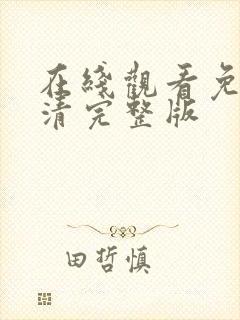 在綫觀看免
清完整版
田哲慎